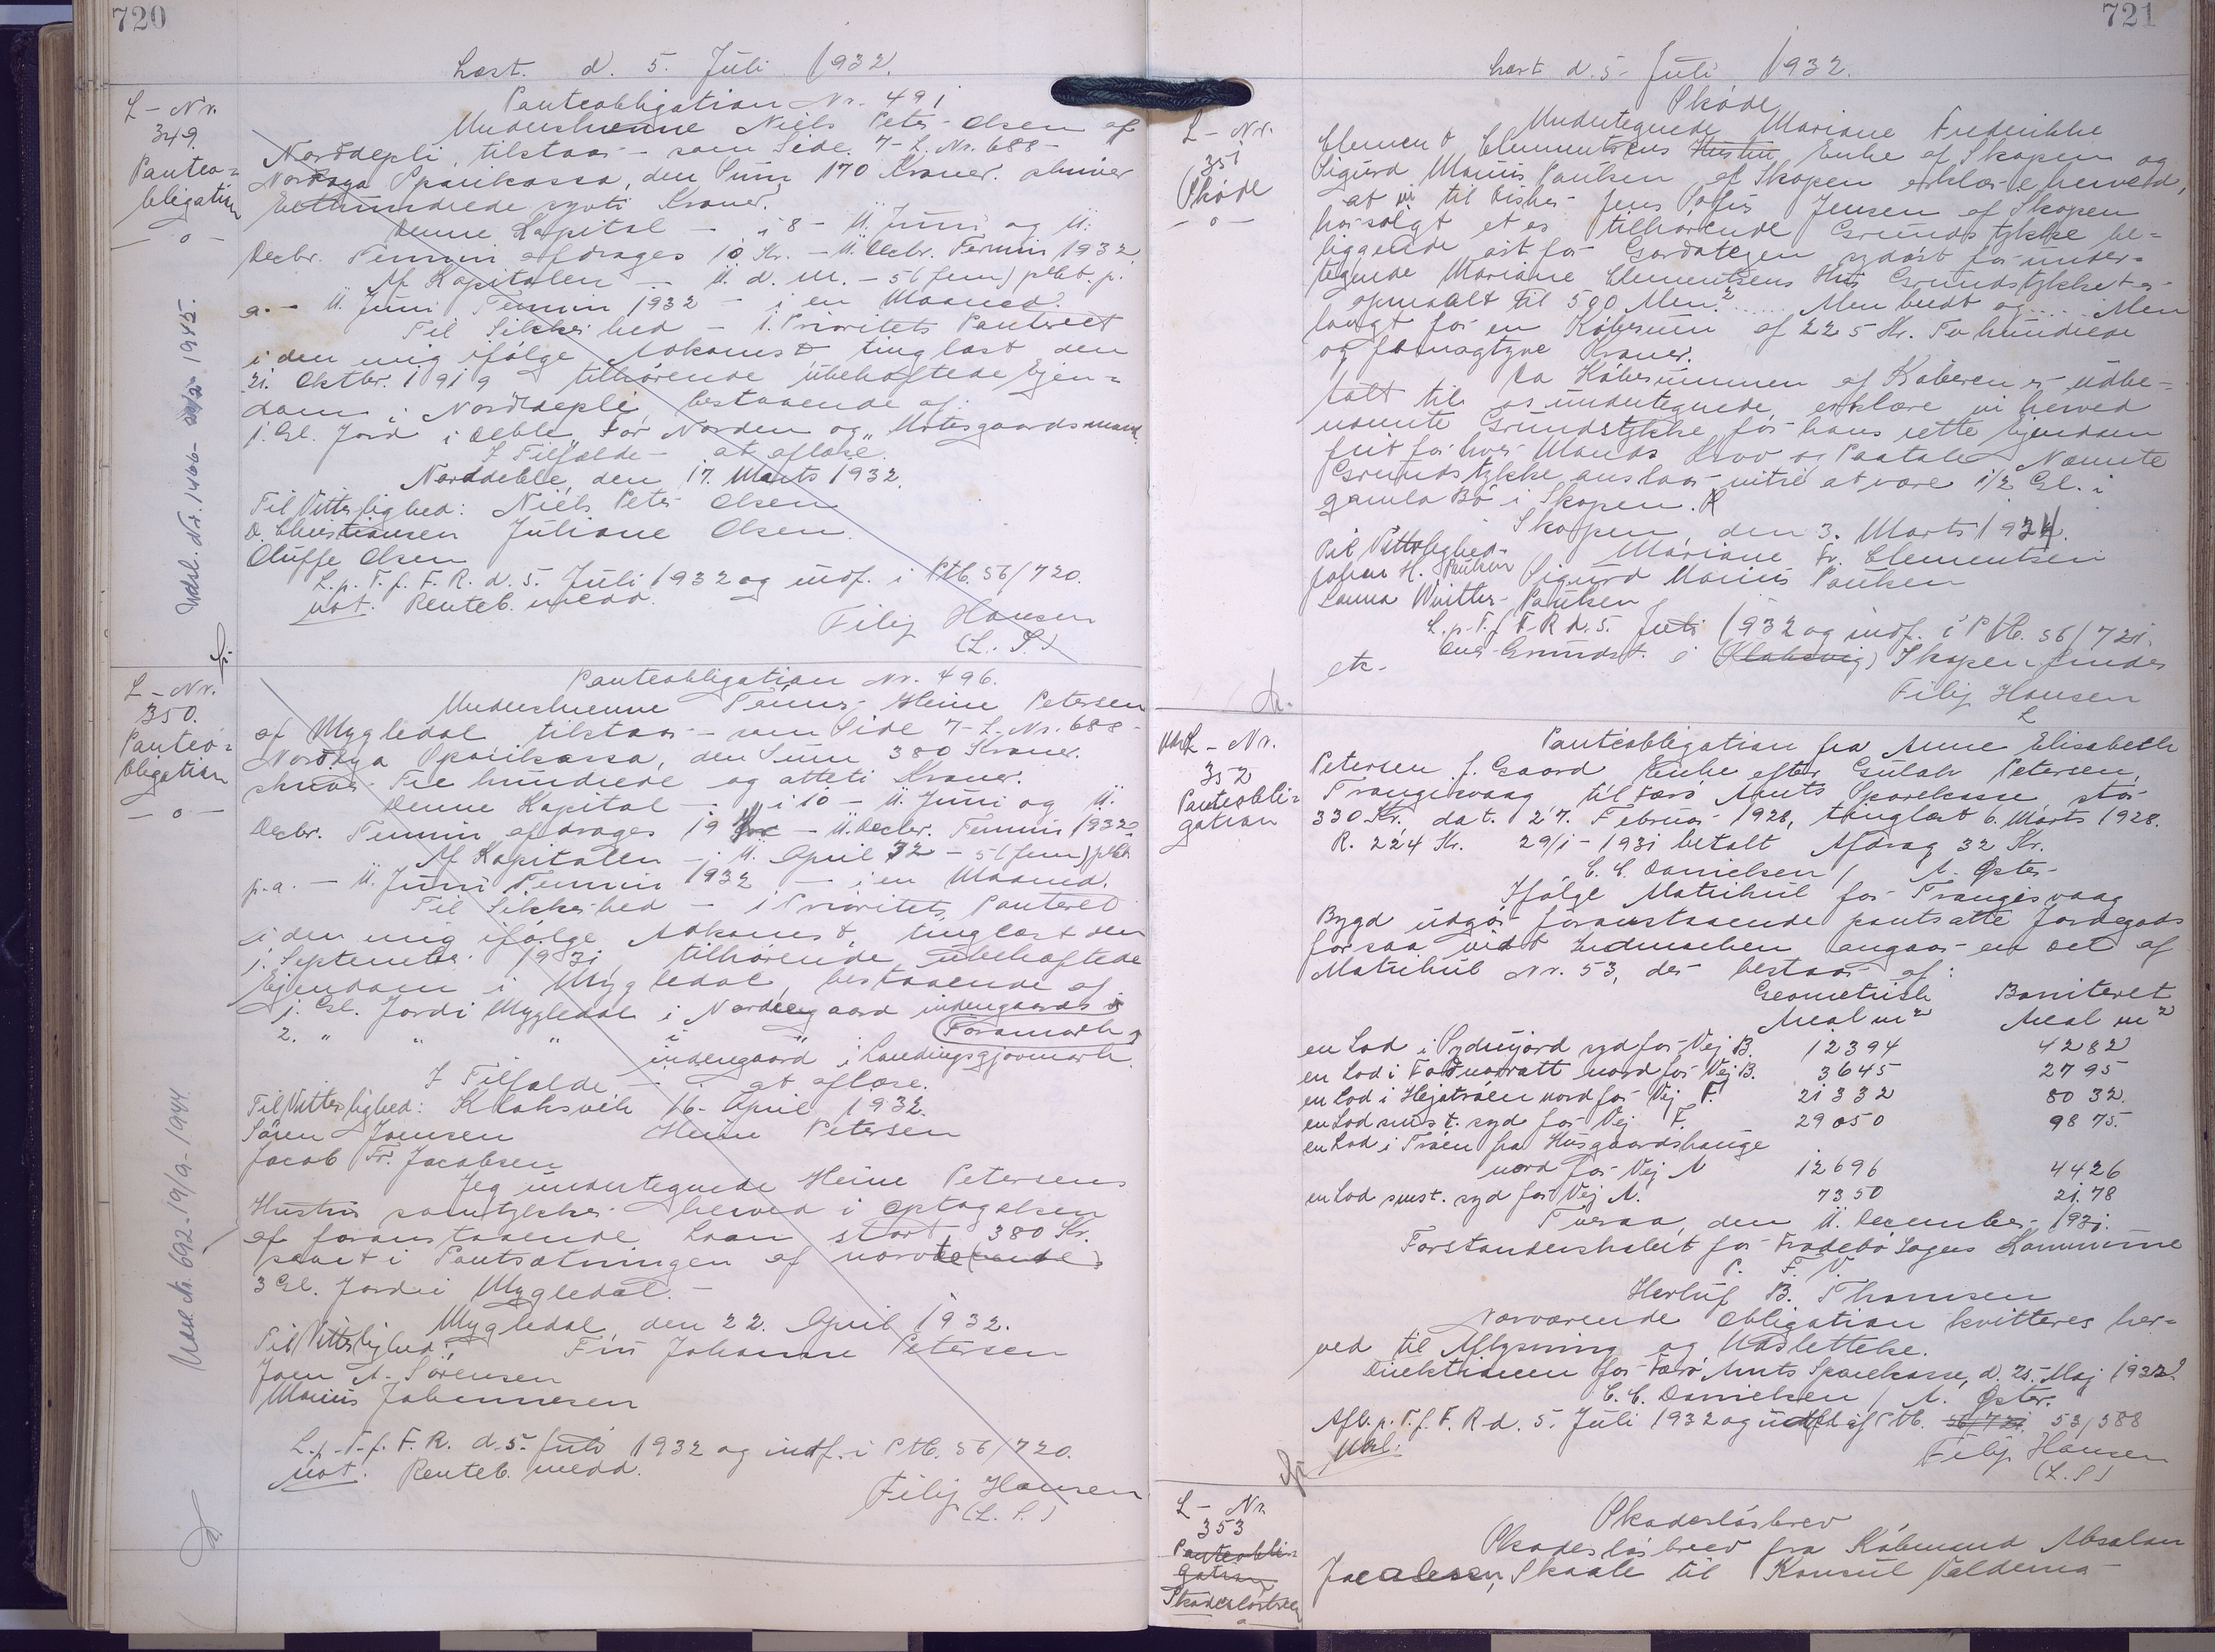 720
Læst. d. 5. Juli 1932.
L - Nr.
349.
Panteo=
bligation
- o -
Panteobligation Nr. 491
Underskrevne Niels Peter Olsen af
Norddepli, tilstaar - som Side 7 - L. Nr. 688 -
Nordoya Sparikassa, den Sum 170 Kroner. skriver
Ethundrede syvti Kroner.
Denne Kapital - i 8 - 11. Juni og 11.
Decbr. Termin afdrages 10 Kr. - 11. Decbr. Termin 1932
Af Kapitalen - 11. d. M. - 5 (fem) pCt. p.
a. - 11 Juni Termin 1932 - i en Maaned.
Til Sikkerhed - 1. Prioritets Panteret
i den mig ifølge Adkomst tinglæst den
21. Oktbr. 1919 tilhørende ubehæftede Ejen=
dom i Norddepli, bestaaende af:
1. Gl. Jord i Deble, "Før Norden og" Mortsgaardsmark
I Tilfælde - at aflæse.
Norddeble, den 17. Marts 1932.
Til Vitterlighed: Niels Peter Olsen
D. Christiansen Juliane Olsen.
Oluffe Olsen
L. p. T. f. F. R. d. 5. Juli 1932 og indf. i Ptb. 56/720.
not. Renteb. medd.
Filip Hansen
(L. S.)
Udsl. Nr. 1466 - 20/2 - 1945.
L - Nr.
350.
Panteo=
bligation
- o -
Panteobligation Nr. 496.
Underskrevne Heine Petersen
af Mygledal tilstaar - som Side 7 - L. Nr. 688 -
Nordoya Sparikassa, den Sum 380 Kroner.
skriver Tre hundrede og otteti Kroner.
Denne Kapital - i 10 - 11. Juni og 11.
Decbr. Termin afdrages 19 Kr - 11. Decbr. Termin 1932
Af Kapitalen - 11. April 32 - 5 (fem) pCt
p. a. - 11. Juni Termin 1932 - i en Maaned.
Til Sikkerhed - 1 Prioritets Panteret
i den mig ifølge Adkomst, tinglæst den
1. September 1931 tilhørende ubehæftede
Ejendom i Mygledal, bestaaende af
1. Gl. Jord i Mygledal i Nordengaard indengaards i
Foramark
2. " " " i "
indengaard i Landingsgjovmark.
I Tilfælde - at aflæse.
Til Vitterlighed: Klaksvik 16. April 1932.
Sören Joensen Heine Petersen
Jacob Fr. Jacobsen
Jeg undertegnede Heine Petersens
Hustru samtykker herved i Optagelsen
af foranstaaende Laan stort 380 Kr.
samt i Pantsætningen af
3 Gl. Jord i Mygledal. -
Mygledal, den 22. April 1932.
Til Vitterlighed: Fru Johanne Petersen
Joen A. Sörensen
Marius Johannesen
L. p. T. f. F. R. d. 5. Juli 1932 og indf. i Ptb. 56/720.
not. Renteb. medd.
Filip Hansen
(L. S.)
Udsl. Nr. 692 - 19/9 - 1944
721
Læst d. 5. Juli 1932.
L - Nr.
351
Skøde
- o -
Skøde
Undertegnede Mariane Fredrikke
Clement Clementsens Hustru Enke af Skopen og
Sigurd Marius Paulsen af Skopen erklære herved,
at vi til Fisker Jens Pofus Jensen af Skopen
har solgt et os tilhørende Grundstykke be=
liggende øst for Gardategen sydøst for under=
tegnede Mariane Clementsens Hus Grundstykket er
opmaalt til 500 Alen² ...... Alen bredt og ..... Alen
langt for en Købesum af 225 Kr. To hundrede
og femogtyve Kroner.
Da Købesummen af Køberen er udbe=
talt til os undertegnede, erklære vi herved
nævnte Grundstykke for hans rette Ejendom
frit for hver Mands Krav og Paatale. Nævnte
Grundstykke anslaas uvitri at være 1/2 Gl. i
gamla Bö i Skopen.
Skopen den 3. Marts 1924.
Til Vitterlighed. Mariane Fr. Clementsen
Johan H. Paulsen Sigurd Marius Paulsen
Sanna Winther Paulsen
L. p. T. f. F. R. d. 5. Juli 1932 og indf. i Ptb. 56/721.
etc. Grundst. i (Klaksvig) Skopen findes
Filip Hansen
L
L - Nr.
352
Panteobli=
gation
Panteobligation fra Anne Elisabeth
Petersen f. Gaard Enke efter Gulak Petersen,
Trangisvaag til Færø Amts Sparekasse stor
330 Kr. dat. 27. Februar 1928, tinglæst 6. Marts 1928.
R. 224 Kr. 29/1 - 1931 betalt Afdrag 32 Kr.
C. C. Danielsen / A. Øster
Ifølge Matrikul for Trangisvaag
Bygd udgør foranstaaende pantsatte Jordegods
forsaa vidt Indmarken angaar en Del af
Matrikul Nr. 53, der bestaar af:
Geometrisk Boniteret
Areal m² Areal m²
en Lod i Sydurjørd syd for Vej B. 12394 4282
en Lod i nord for Vej B. 3645 2795
en Lod i Hejatröen nord for Vej F. 21332 8032.
en Lod smst. syd for Vej F. 29050 9875.
en Lod i Tröen fra Husgaardshauge
nord for Vej A 12696 4426
en Lod smst. syd for Vej A. 7350 2178
Tveraa, den 11. December 1931.
Forstanderskabet for Frodebø Sogns Kommune
P. F. V.
Herluf B. Thomsen
Nærværende Obligation kvitteres her=
ved til Aflysning og Udslettelse.
Direktionen for Færø Amts Sparekasse, d. 25. Maj 1932
C. C. Danielsen / A. Øster.
Afl. p. T. f. F. R. d. 5. Juli 1932 og udsl af Ptb. 56/721 53/588
Udsl.
Filip Hansen
(L. S.)
L - Nr.
353
Panteobli=
gation
Skadesløsbrev
Skadesløsbrev
Skadesløsbrev fra Købmand Absalon
Jacobsen, Skaale til Konsul Valdemar